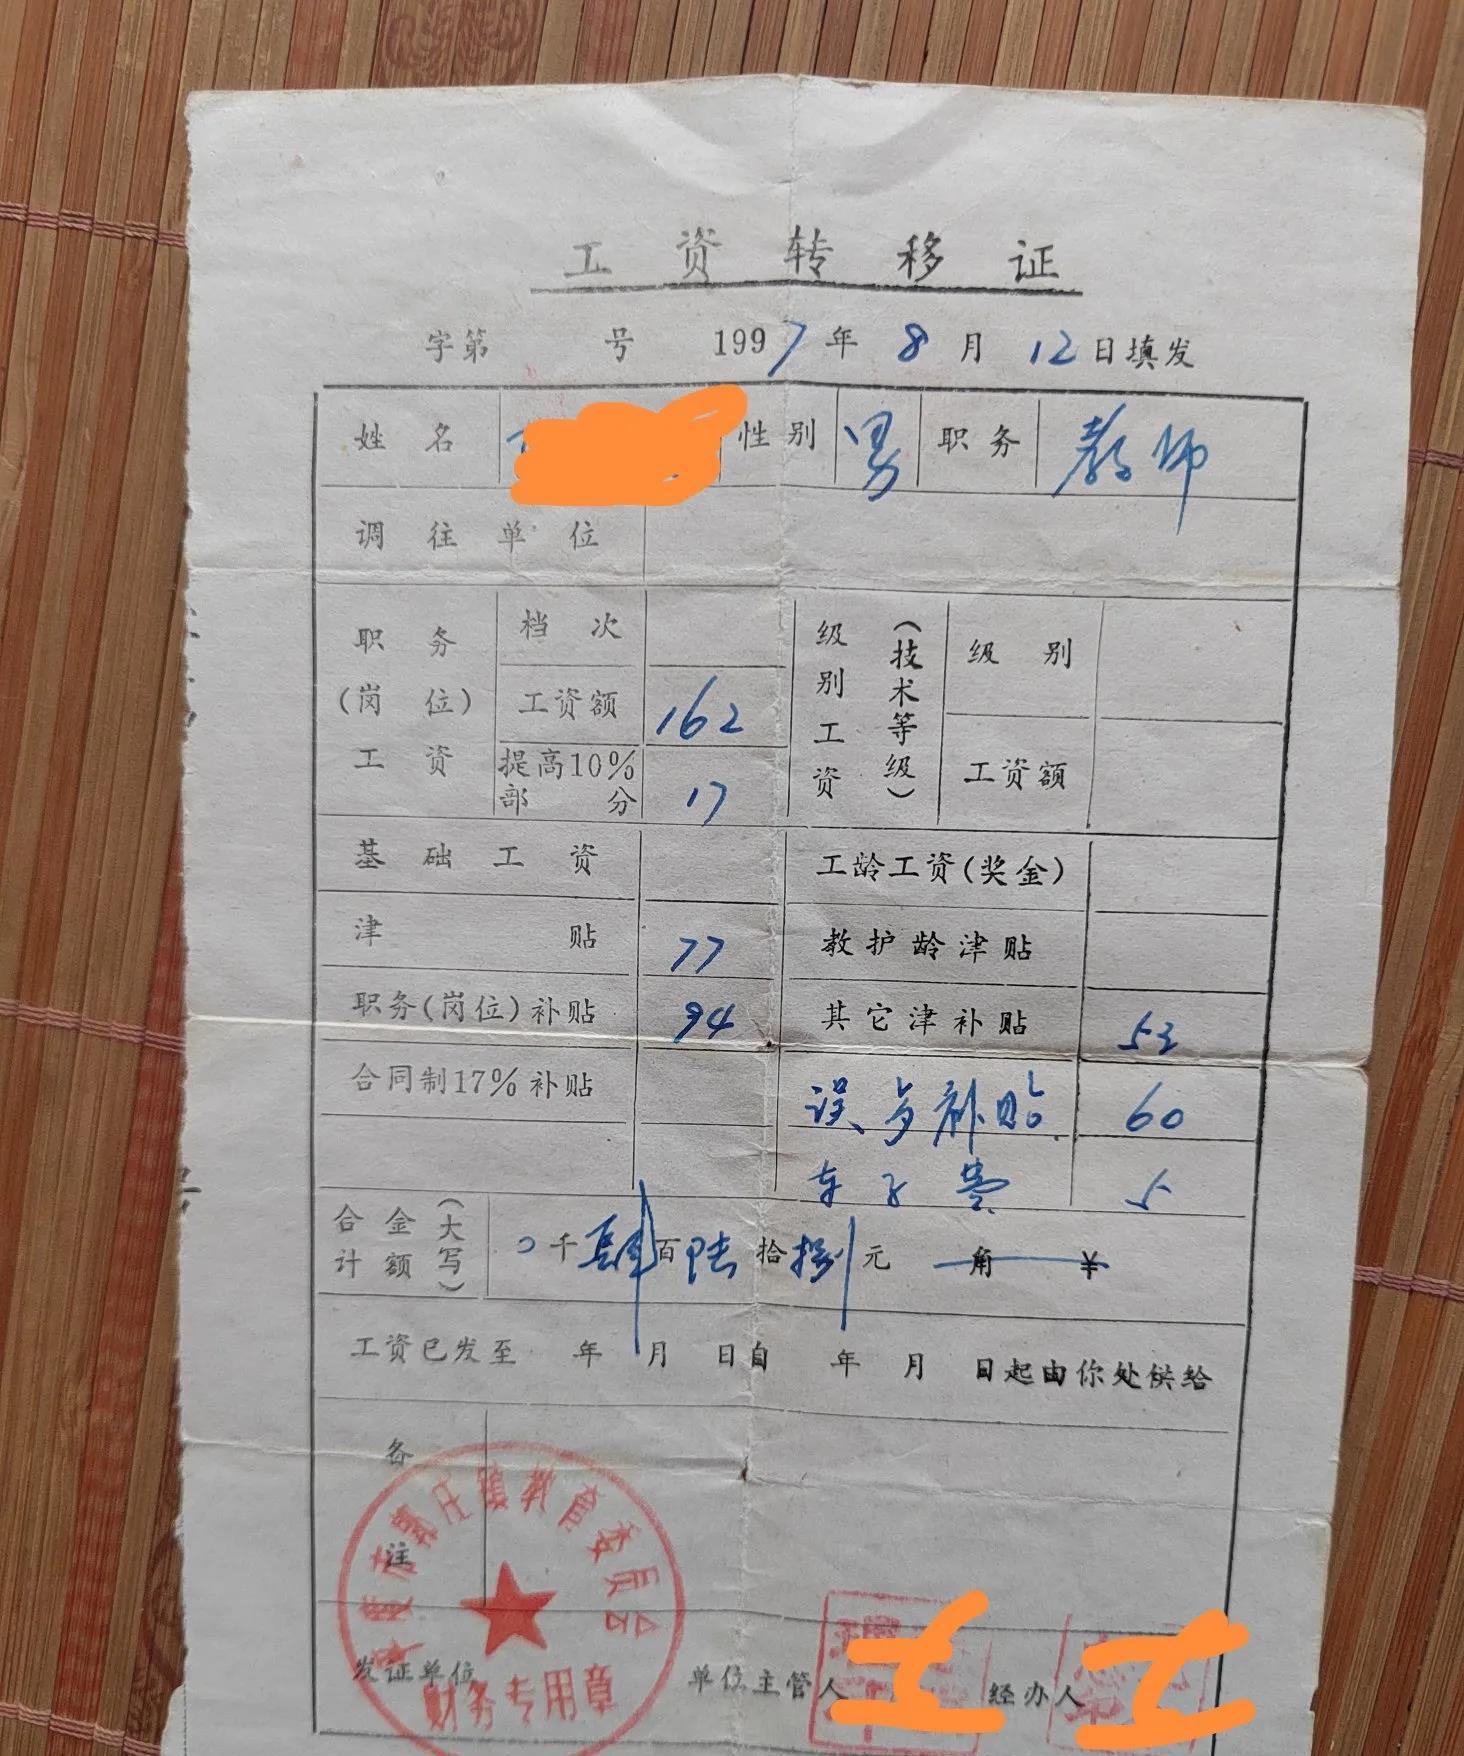 工资转移证
字第 号 1997年8月12日填发
姓名 性别 男 职务 教师
调往单位
职务(岗位)工资 档次 级别工资(技术等级) 级别
工资额 162 工资额
提高10%部分 17
基础工资 工龄工资(奖金)
津贴 77 教护龄津贴
职务(岗位)补贴 94 其它津补贴 53
合同制17%补贴 误歺补贴 60
车子费 5
合计金额(大写) 0千肆百陆拾捌元 角 ¥
工资已发至 年 月 日自 年 月 日起由你处供给
备注
庄镇教育委员会
财务专用章
发证单位 单位主管人 经办人